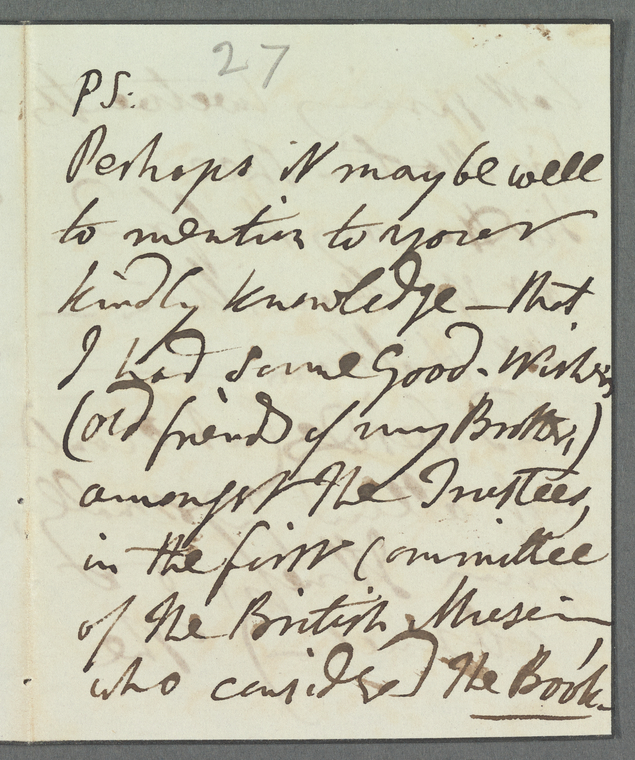 27
PS:
Perhaps it may be well
to mention to your
kindly knowledge – that
I had some Good-Wishers
(old friends of my Brother,)
amongst the Trustees,
in the first Committee
of the British Museum,
who considered The Book–